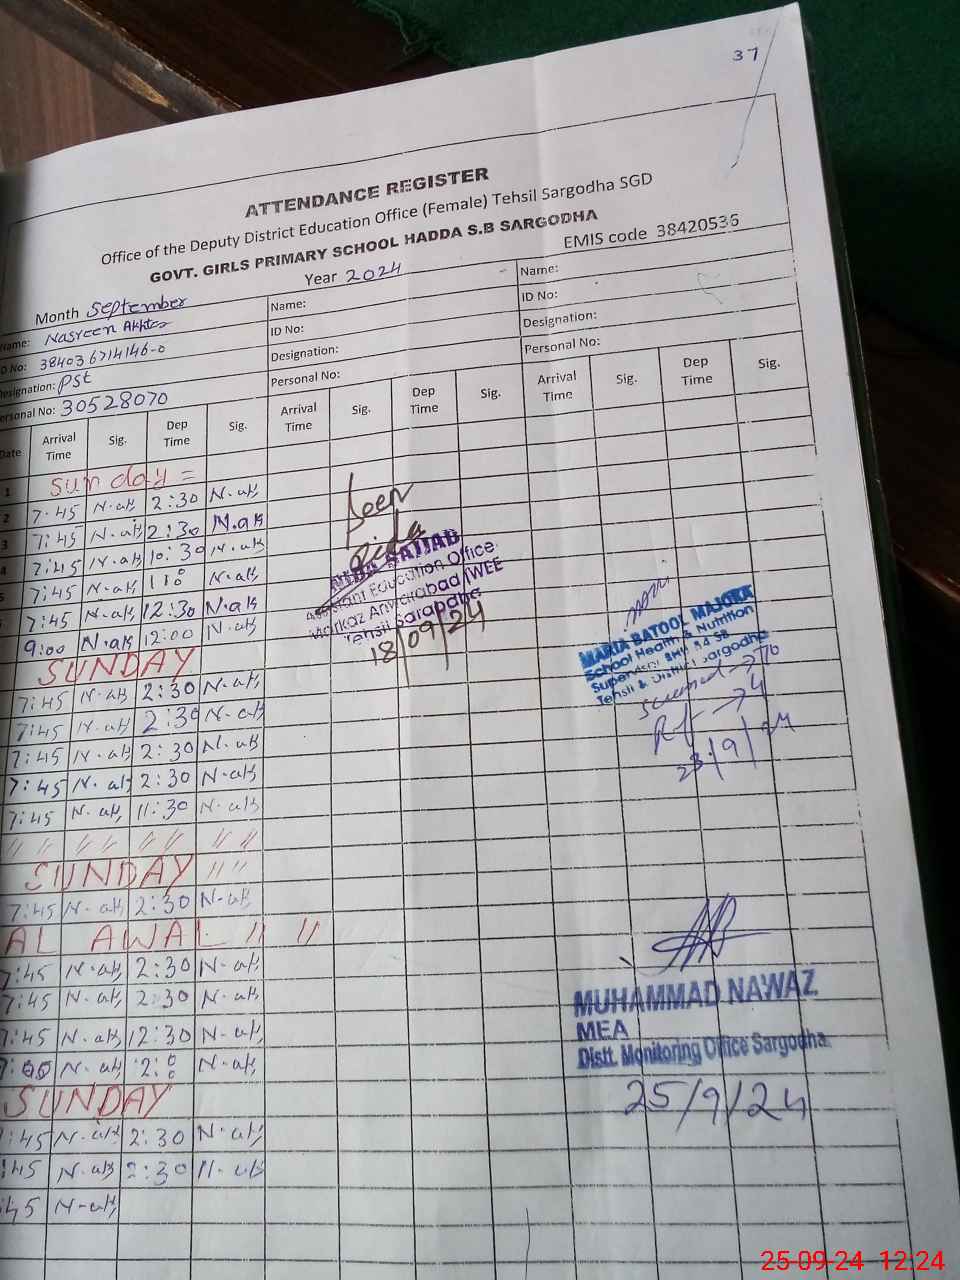 37
ATTENDANCE REGISTER
Office of the Deputy District Education Office (Female) Tehsil Sargodha SGD
GOVT. GIRLS PRIMARY SCHOOL HADDA S.B SARGODHA
Month September Year 2024 EMIS code 38420536
Name: Nasreen Akhtar Name: Name:
ID No: 384036714146-0 ID No: ID No:
Designation: PST Designation: Designation:
Personal No: 30528070 Personal No: Personal No:
Date Arrival Time Sig. Dep Time Sig. Arrival Time Sig. Dep Time Sig. Arrival Time Sig. Dep Time Sig.
1 Sunday =
2 7:45 N-ak 2:30 N-ak
3 7:45 N-ak 2:30 N.ak
4 7:45 N-ak 10:30 N-ak
5 7:45 N-ak N-ak
7:45 N-ak 12:30 N-ak
9:00 N.ak 12:00 N-ak
SUNDAY
7:45 N-ak 2:30 N-ak
7:45 N-ak 2:30 N-ak
7:45 N-ak 2:30 N-ak
7:45 N-ak 2:30 N-ak
7:45 N-ak 11:30 N-ak
〃 〃 〃 〃 〃 〃 〃
SUNDAY 〃 〃
7:45 N-ak 2:30 N-ak
AL AWAL 〃 〃
7:45 N-ak 2:30 N-ak
7:45 N-ak 2:30 N-ak
7:45 N-ak 12:30 N-ak
N-ak N-ak
SUNDAY
:45 N-ak 2:30 N-ak
:45 N-ak 2:30 N-ak
:45 N-ak
Seen
SAJJAD
Assistant Education Office
Markaz
Tehsil
18/09/24
MARIA BATOOL
School Health & Nutrition
Tehsil & District Sargodha
23/9/24
MUHAMMAD NAWAZ
MEA
Distt. Monitoring Office Sargodha
25/9/24
25-09-24 12:24